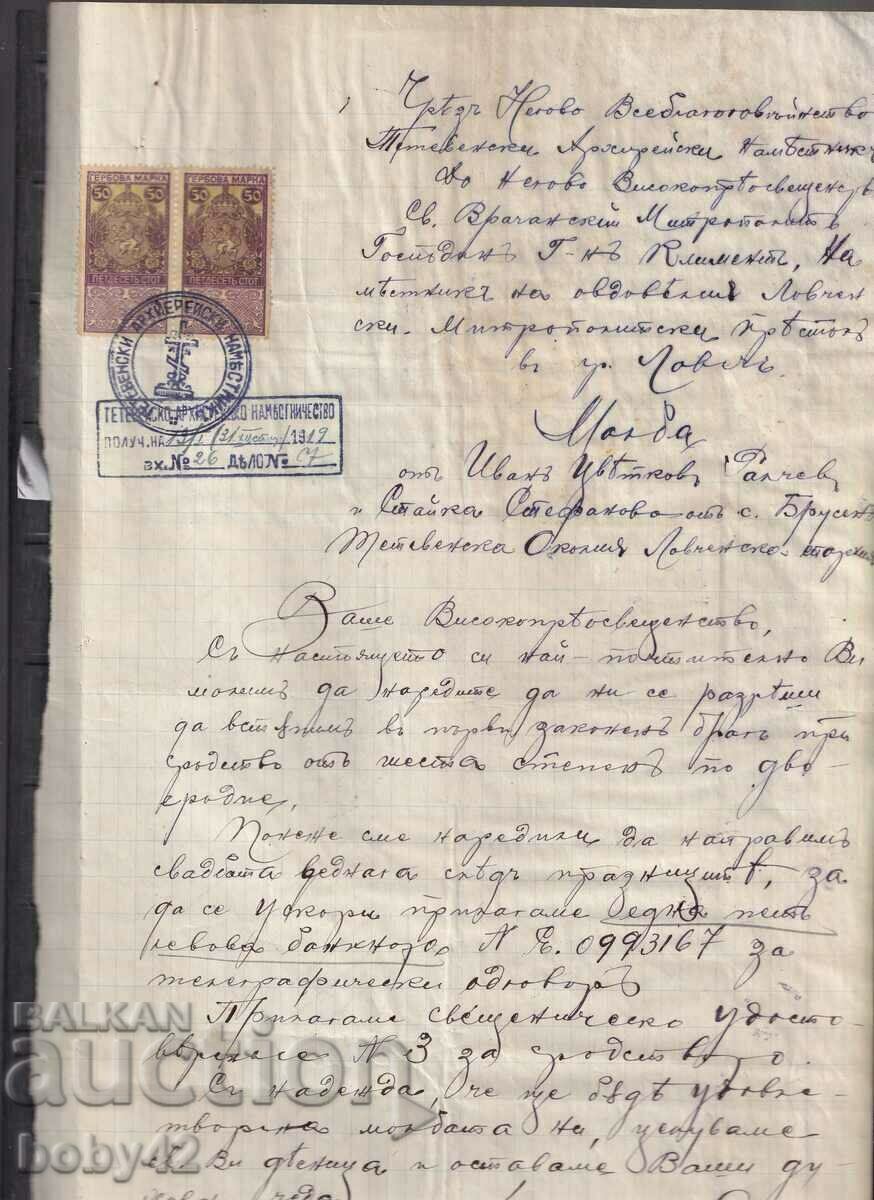 Чрѣзъ Негово Всеблагоговѣйнство
Тетевенски Архирейски Намѣстникъ
До Негово Високопрѣосвещенств
Св. Врачанский Митрополитъ
Господинъ Г-нъ Климентъ, На
мѣстникъ на овдовѣлия Ловчен
ски Митрополитски прѣстолъ
въ гр. Ловечъ.
ГЕРБОВА МАРКА ГЕРБОВА МАРКА
50 50 50 50
ПЕТДЕСЕТЬ СТОТ. ПЕТДЕСЕТЬ СТОТ.
ТЕТЕВЕНСКИ АРХИЕРЕЙСКИ НАМѢСТНИКЪ
ТЕТЕВЕНСКО АРХИЕРЕЙСКО НАМѢСТНИЧЕСТВО
ПОЛУЧ. НА 13/I 1919
ВХ. № 26 ДѢЛО № 7
Молба
отъ Иванъ Цвѣтковъ Ранчевъ
и Стайка Стефанова отъ с. Брусенъ
Тетевенска Околия Ловченска епархия
Ваше Високопрѣосвещенство,
Съ настоящето си най-почтително Ви
молимъ да наредите да ни се разрѣши
да встѫпимъ въ първи законенъ бракъ при
сродство отъ шеста степень по дво-
еродие.
Понеже сме наредили да направимъ
свадбата веднага слѣдъ празницитѣ, за
да се ускори прилагаме една петь
левова банкнота N Е. 0993167 за
телеграфически одговоръ
Прилагаме свещеническо удосто-
вѣрение N 3 за сродството.
Съ надежда, че ще бѫдѣ удовле-
творена молбата ни, целуваме
Ви дѣсница и оставаме Ваши ду
ховни чеда
BALKAN
auction
boby42